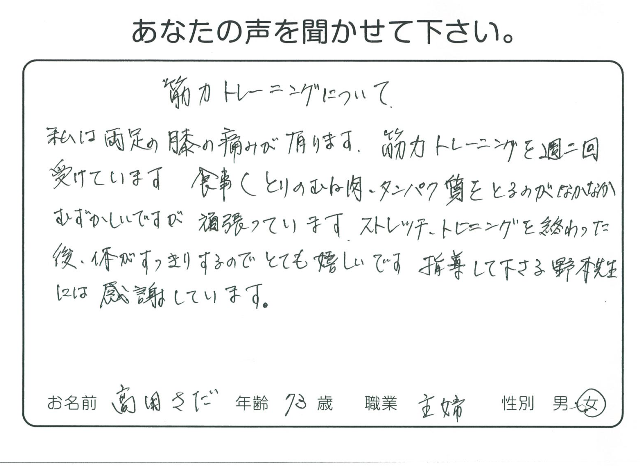 あなたの声を聞かせて下さい。
筋力トレーニングについて
私は両足の膝の痛みが有ります。筋力トレーニングを週二回
受けています 食事くとりのむね肉、タンパク質をとるのがなかなか
むずかしいですが 頑張っています ストレッチ、トレーニングを終わった
後、体がすっきりするのでとても嬉しいです 指導して下さる野本先生
には感謝しています。
お名前 高田さだ 年齢 73 歳 職業 主婦 性別 男・女